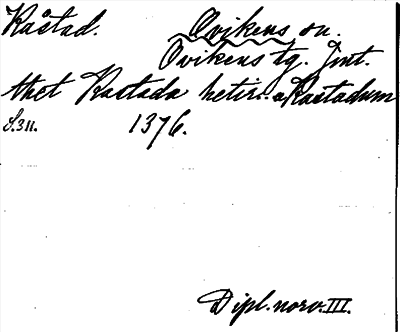 Kastad. Ovikens sn.
Ovikens tg. Jmt.
thet Kastada hetir. a Kastadum
S.311. 1376.
Dipl. norv. III.